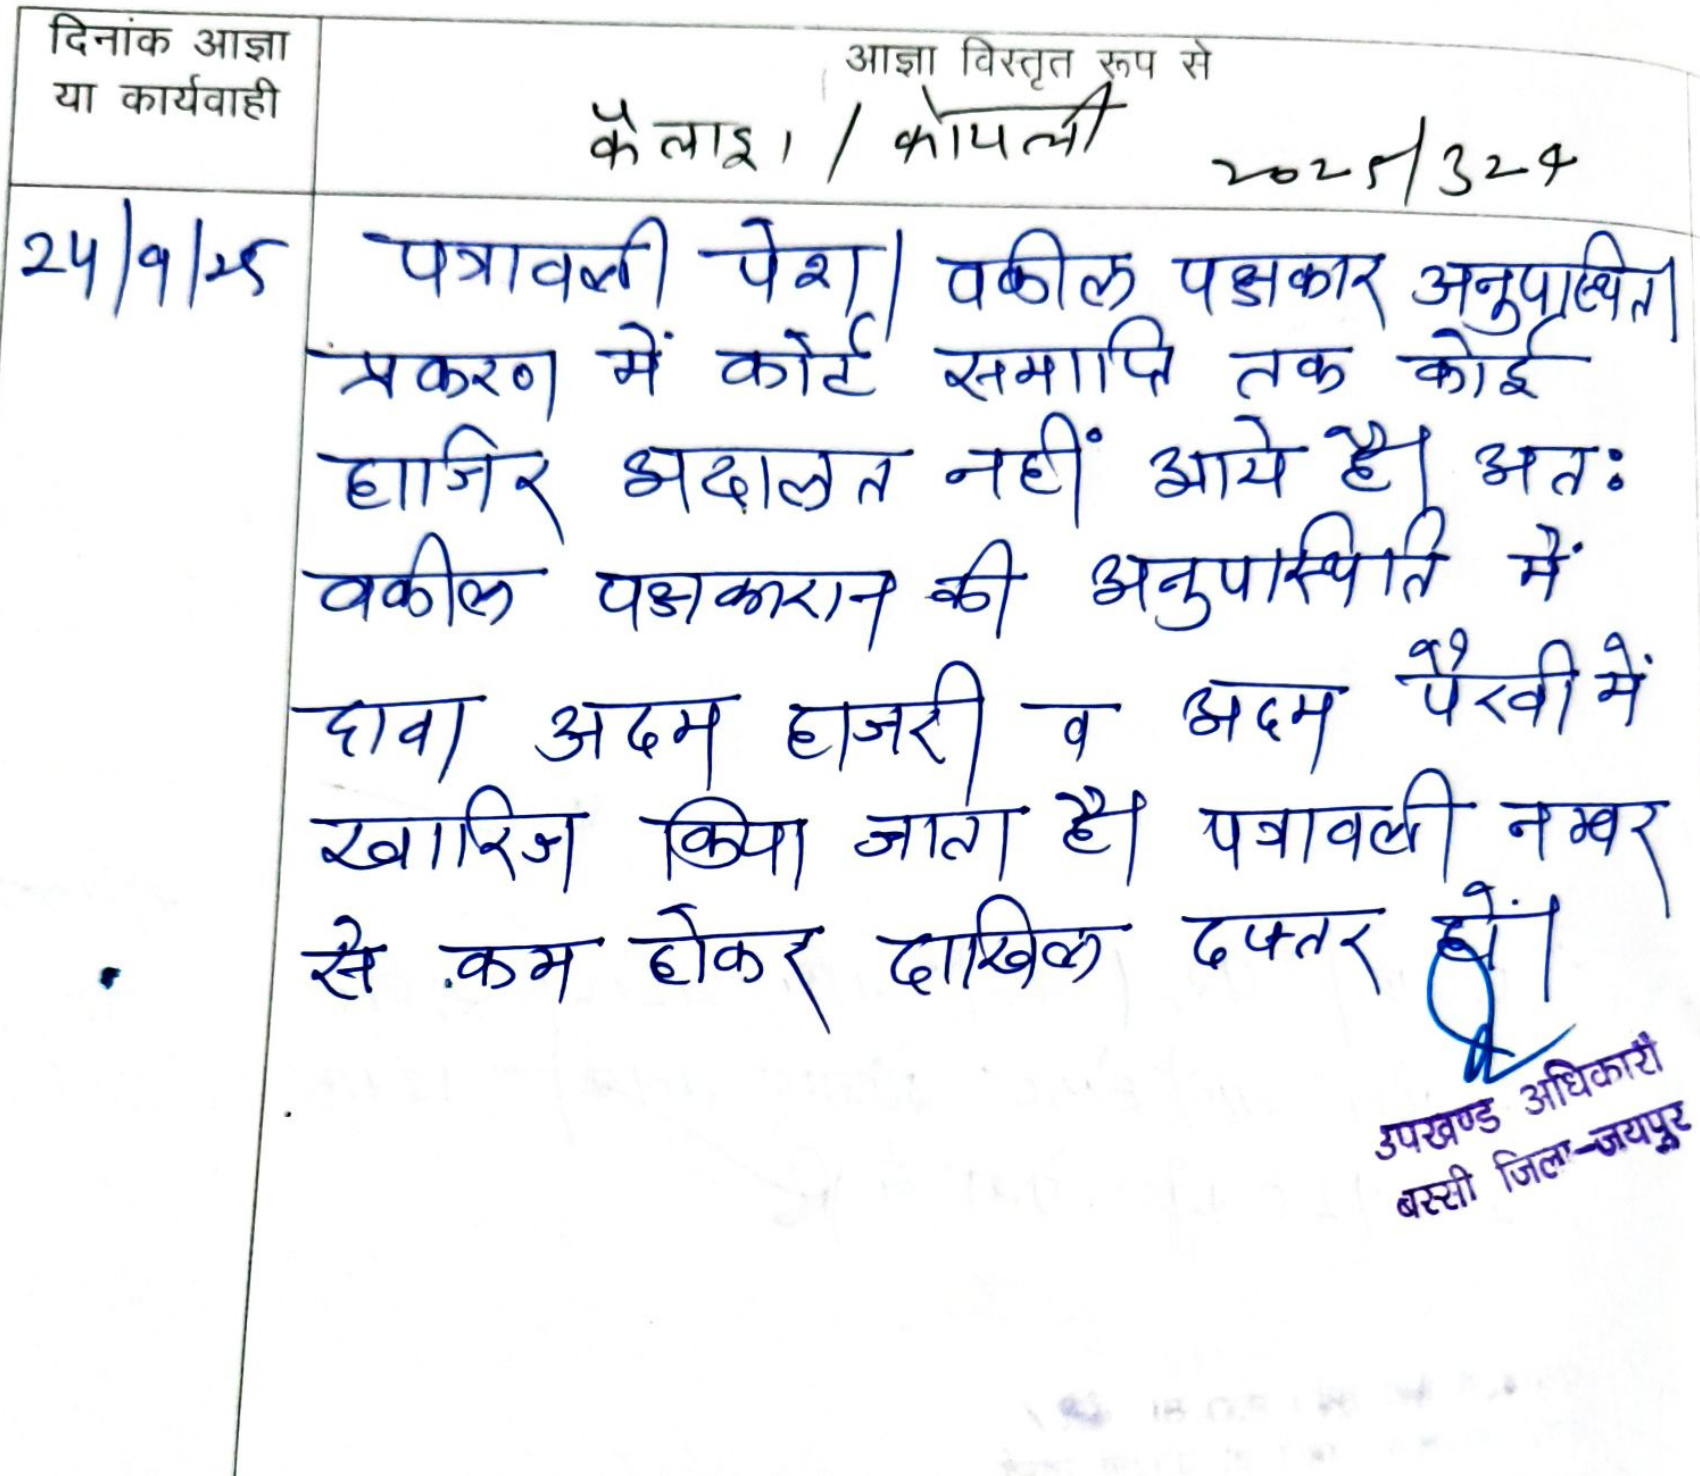 दिनांक आज्ञा
या कार्यवाही
आज्ञा विस्तृत रूप से
कैलाश / कोयली
2025/324
24/9/25
पत्रावली पेश। वकील पक्षकार अनुपस्थित।
प्रकरण में कोर्ट समाप्ति तक कोई
हाजिर अदालत नहीं आये है। अतः
वकील पक्षकारान की अनुपस्थिति में
दावा अदम हाजरी व अदम पैरवी में
खारिज किया जाता है। पत्रावली नम्बर
से कम होकर दाखिल दफ्तर हों।
उपखण्ड अधिकारी
बस्सी जिला-जयपुर